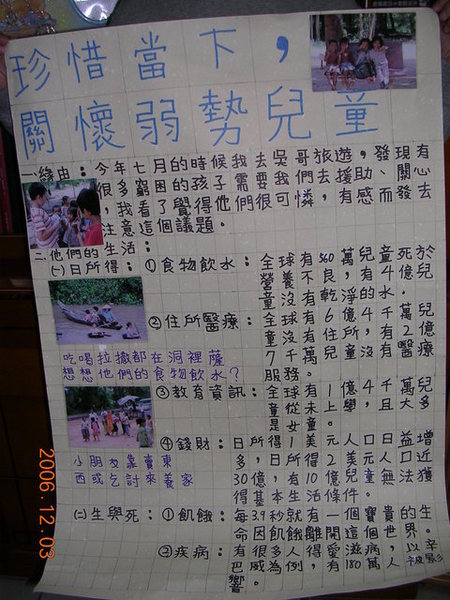 珍惜當下，
關懷弱勢兒童
一.緣由：今年七月的時候我去吳哥旅遊，發現有
很多窮困的孩子需要我們去援助、關心
，我看了覺得他們很可憐，有感而發去
注意這個議題。
二.他們的生活：
㈠日所得：①食物飲水：全球有560萬兒童死於
營養不良，有4億兒
童沒有乾淨的水．
②住所醫療：全球有6億4千萬兒
童沒有住所，有2億
7千萬兒童沒有醫療
服務。
吃喝拉撒都在洞裡薩
想想他們的食物飲水？
③教育資訊：全球有1億4千萬兒
童從未上學，且大多
是女童。
④錢財：日所得1美元人口日益增
多，日所得2美元人口近
30億，有10億兒童無法獲
得基本生活條件。
小朋友靠賣東
西或乞討來養家
㈡生與死：①飢餓：每3.9秒就有一個寶貴的生
命因飢餓離開這個世界。
②疾病：有很多人得愛滋病，以辛
巴威為例，有180萬人被影
響。
2006.12.03